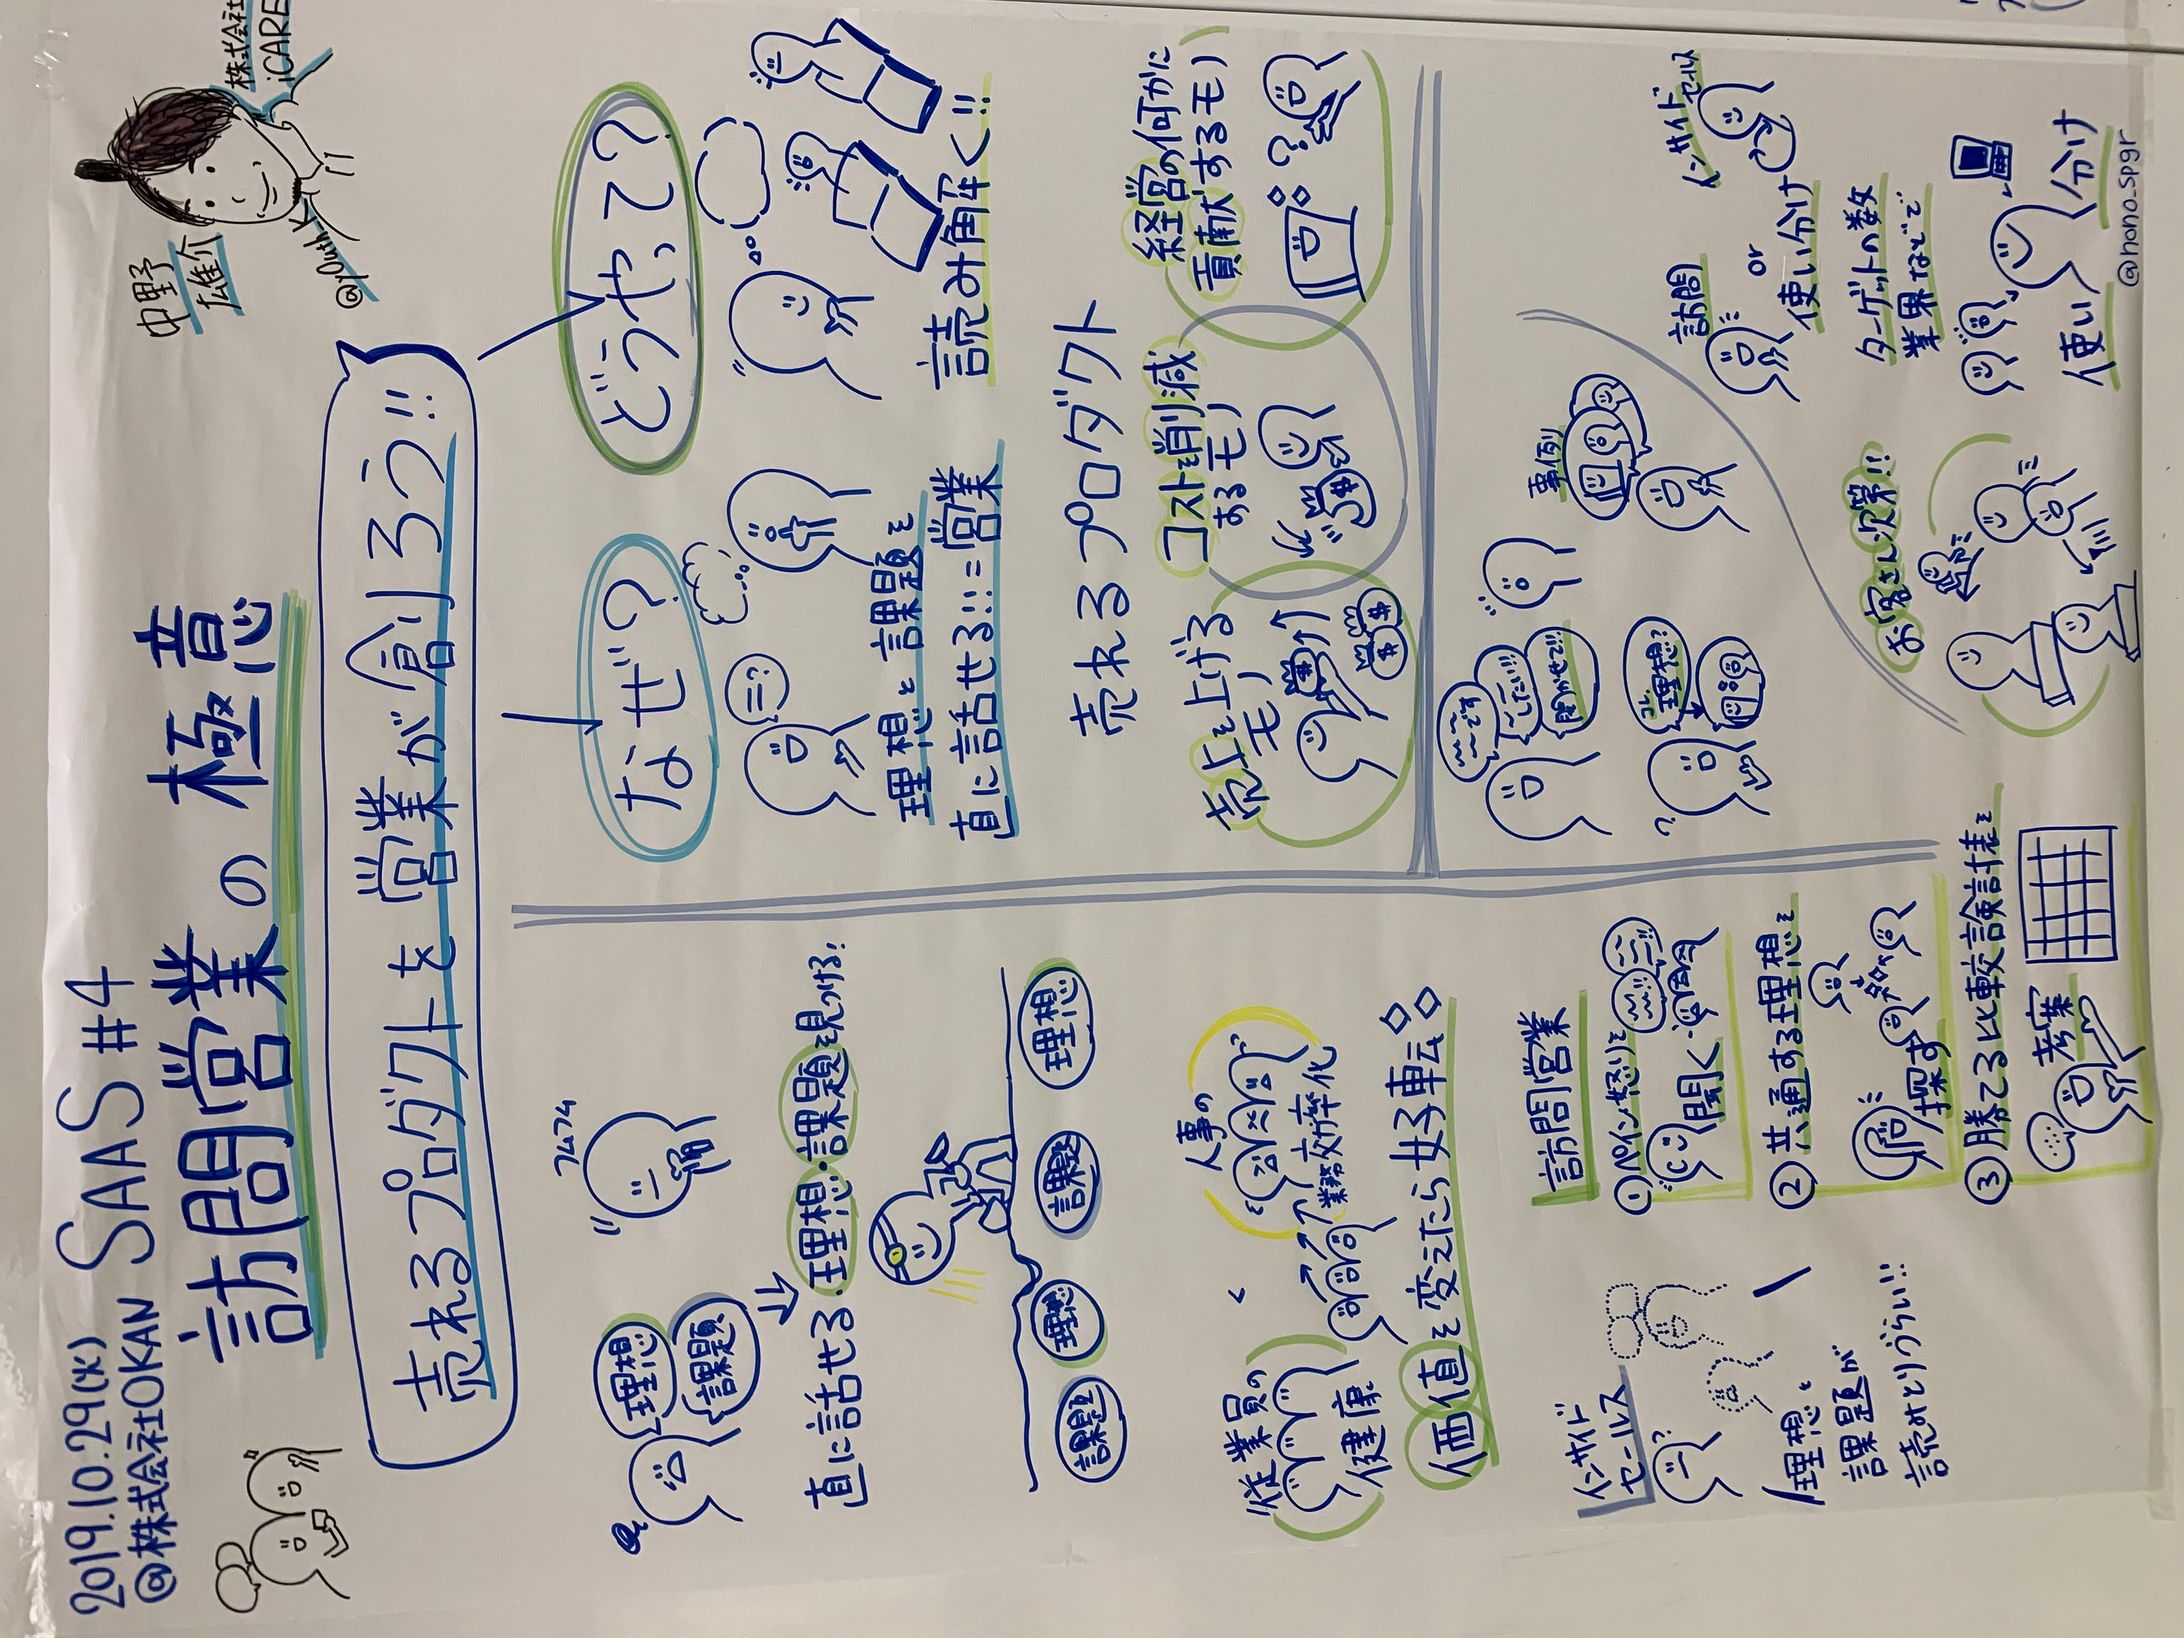 2019.10.29(火) SAAS #4
@株式会社OKAN
訪問営業の極意
中野
雄介
株式会社
iCARE
売れるプロダクトを営業が創ろう!!
なぜ?
どうやって?
理想と課題を
直に話せる!!=営業
読み解く!!
売れるプロダクト
売上を上げる
モノ
コストを削減
するモノ
経営の何かに
貢献するモノ
理想
課題
フムフム
直に話せる・理想・課題を見つける!
課題
理想
課題
理想
従業員の
健康
<
人事の
業務効率化
価値を変えたら好転
インサイド
セールス
理想と
課題が
読みとりづらい!!
訪問営業
①ペイン(怒り)を
聞く
②共通する理想を
探す
③勝てる比較検討表を
考案
〜したい!!!
聞かせて!!!
理想!?
事例
お客さん次第!!
訪問
or
インサイドセールス
使い分け
ターゲットの数
業界などで
使い分け
@nono.spgr